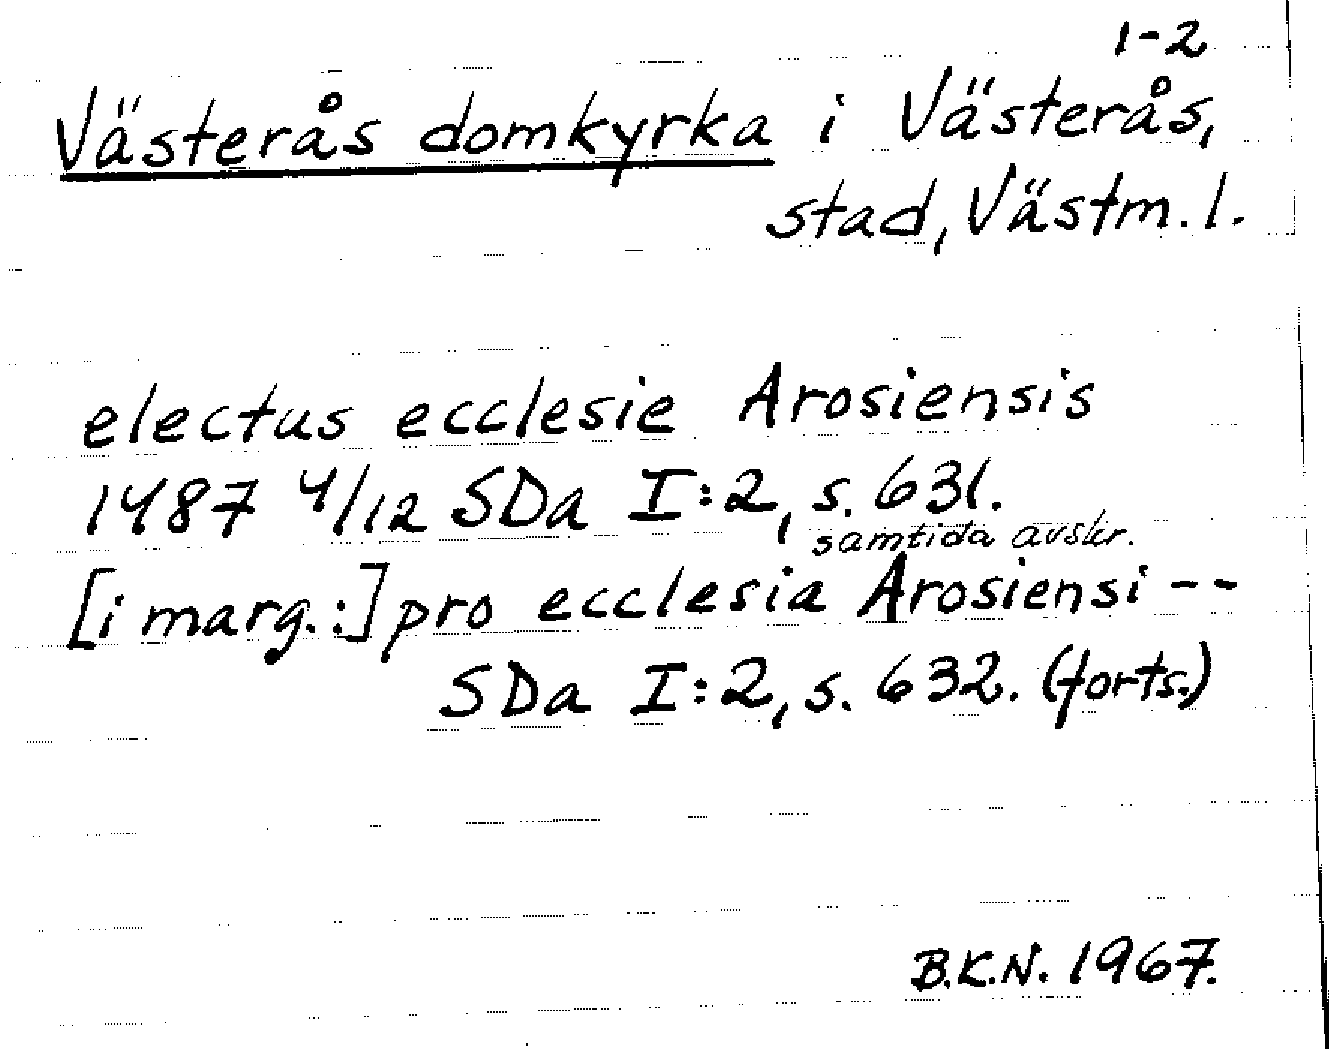 1-2
Västerås domkyrka i Västerås,
stad, Västm. l.
electus ecclesie Arosiensis
1487 4/12 SDa I:2, s. 631.
samtida avskr.
[i marg.:] pro ecclesia Arosiensi --
SDa I:2, s. 632. (forts.)
B.K.N. 1967.